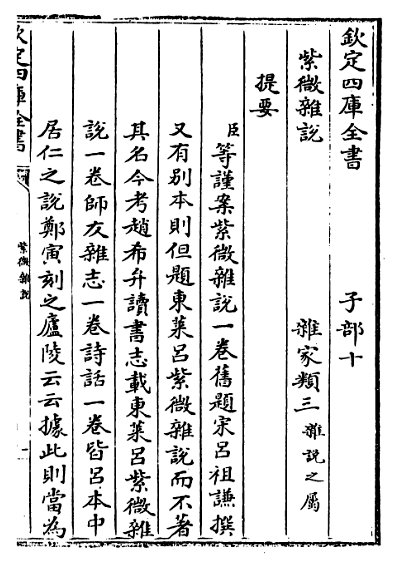 欽定四庫全書　　　子部十
紫微雜說　　　雜家類三雜說之屬
提要
臣等謹案紫微雜說一卷舊題宋呂祖謙撰
又有别本則但題東萊呂紫微雜說而不著
其名今考趙希弁讀書志載東萊呂紫微雜
說一卷師友雜志一卷詩話一卷皆呂本中
居仁之說鄭寅刻之廬陵云云據此則當為
欽定四庫全書
紫微雜說
一